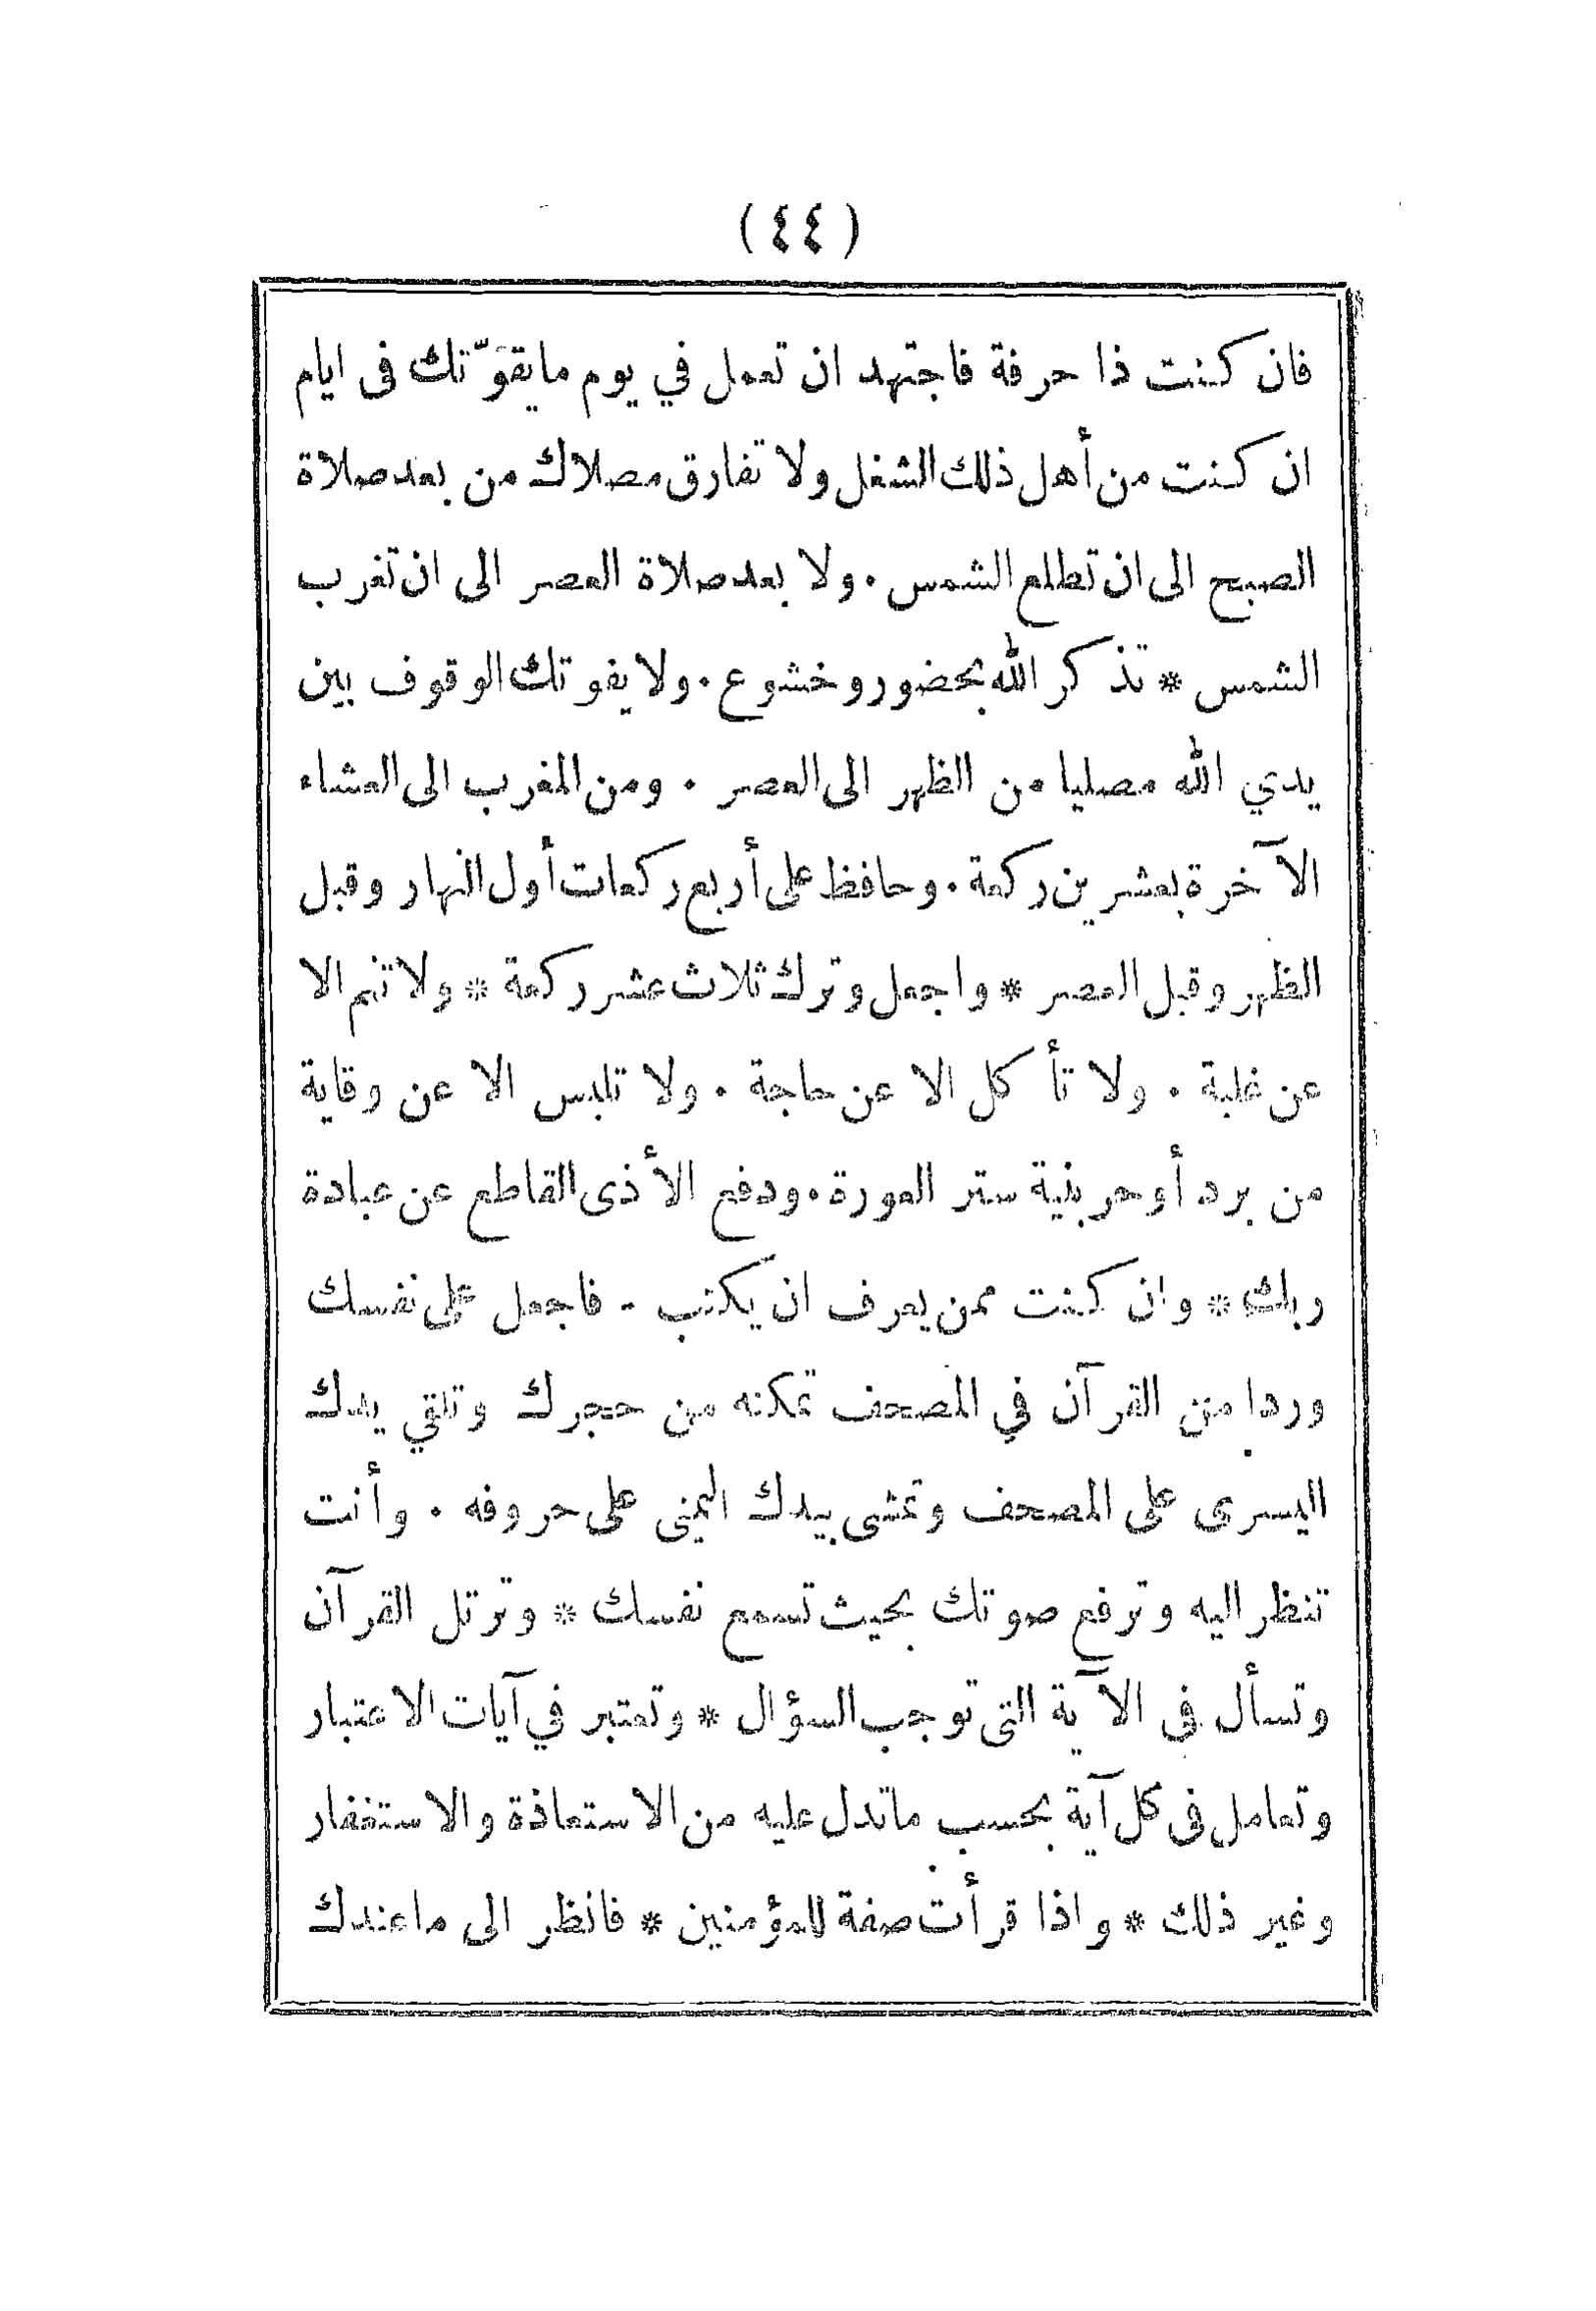 (٤٤)
فان كنت ذا حرفة فاجتهد ان تعمل في يوم مايقوّتك فى ايام
ان كنت من أهل ذلك الشغل ولا تفارق مصلاك من بعد صلاة
الصبح الى ان تطلع الشمس ٠ ولا بعد صلاة العصر الى ان تغرب
الشمس * تذكر الله بحضور وخشوع ٠ ولا يفوتك الوقوف بين
يدي الله مصليا من الظهر الى العصر ٠ ومن المغرب الى العشاء
الآخرة بعشرين ركعة ٠ وحافظ على أربع ركعات أول النهار وقبل
الظهر وقبل العصر * واجعل وترك ثلاث عشر ركعة * ولا تنم الا
عن غلبة ٠ ولا تأكل الا عن حاجة ٠ ولا تلبس الا عن وقاية
من برد أو حر بنية ستر العورة ٠ ودفع الأذى القاطع عن عبادة
ربك * وان كنت ممن يعرف ان يكتب - فاجعل على نفسك
وردا من القرآن في المصحف تمكنه من حجرك وتلقي يدك
اليسرى على المصحف وتمشى بيدك اليمنى على حروفه ٠ وأنت
تنظر اليه وترفع صوتك بحيث تسمع نفسك * وترتل القرآن
وتسأل فى الآية التى توجب السؤال * وتعتبر في آيات الاعتبار
وتعامل فى كل آية بحسب ماتدل عليه من الاستعاذة والاستغفار
وغير ذلك * واذا قرأت صفة للمؤمنين * فانظر الى ماعندك